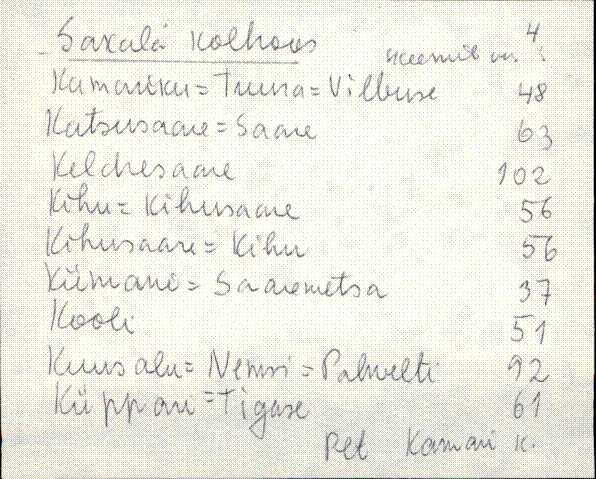 4
Saxalá kolhoos
skeemil nr.:
Kamariku = Tuura = Vilbuse 48
Katsusaare = Saare 63
Keldresaare 102
Kihu = Kihusaare 56
Kihusaare = Kihu 56
Kiimani = Saaremetsa 37
Kooli 51
Kuusalu = Nemsi = Palwelti 92
Küppari = Tigase 61
Pet Kamari k.